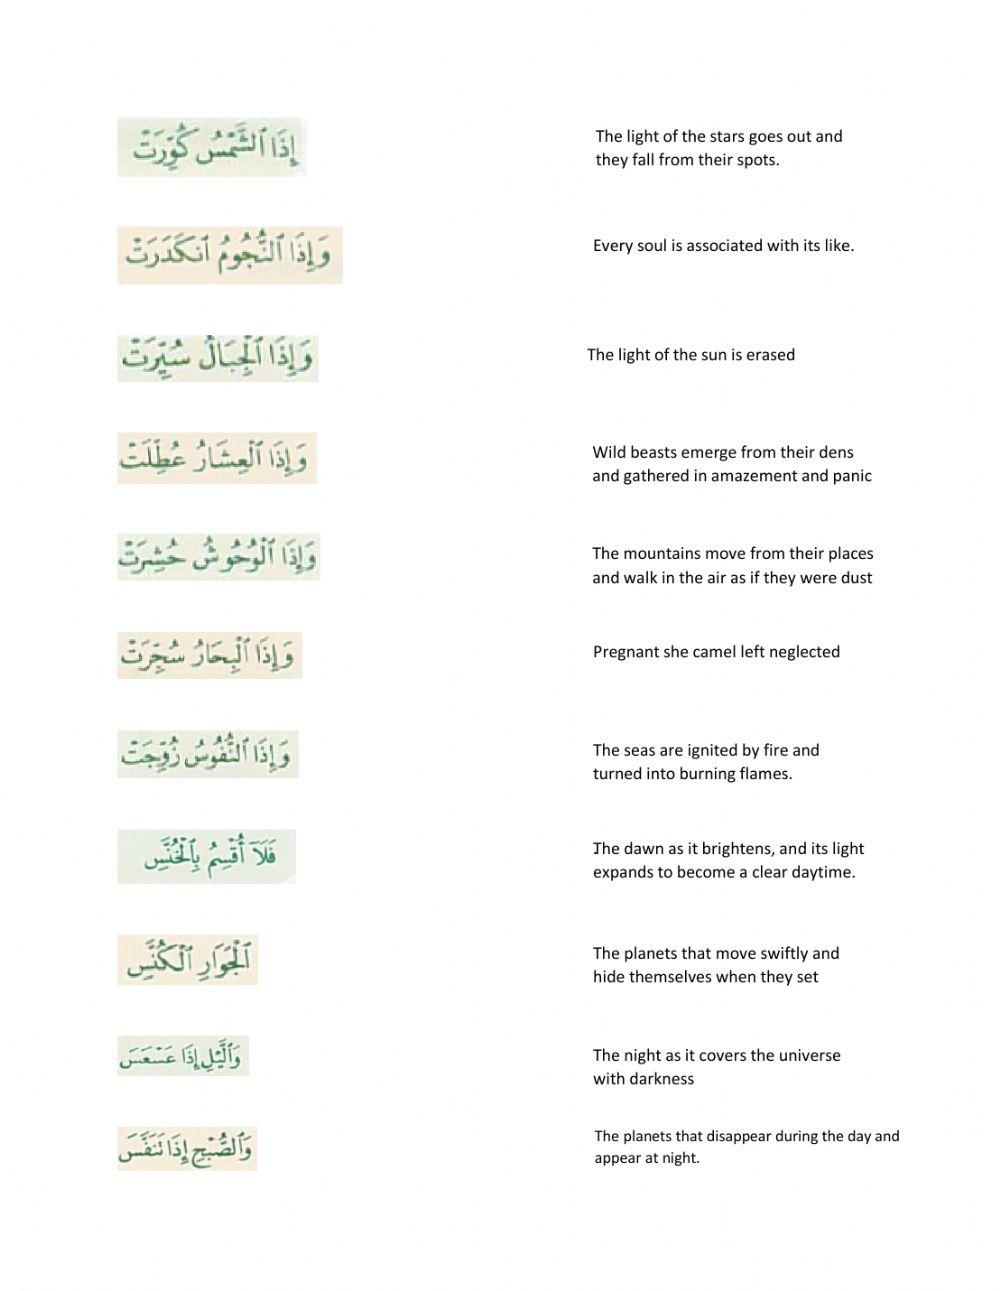 إِذَا ٱلشَّمْسُ كُوِّرَتْ
The light of the stars goes out and
they fall from their spots.
وَإِذَا ٱلنُّجُومُ ٱنكَدَرَتْ
Every soul is associated with its like.
وَإِذَا ٱلْجِبَالُ سُيِّرَتْ
The light of the sun is erased
وَإِذَا ٱلْعِشَارُ عُطِّلَتْ
Wild beasts emerge from their dens
and gathered in amazement and panic
وَإِذَا ٱلْوُحُوشُ حُشِرَتْ
The mountains move from their places
and walk in the air as if they were dust
وَإِذَا ٱلْبِحَارُ سُجِّرَتْ
Pregnant she camel left neglected
وَإِذَا ٱلنُّفُوسُ زُوِّجَتْ
The seas are ignited by fire and
turned into burning flames.
فَلَآ أُقْسِمُ بِٱلْخُنَّسِ
The dawn as it brightens, and its light
expands to become a clear daytime.
ٱلْجَوَارِ ٱلْكُنَّسِ
The planets that move swiftly and
hide themselves when they set
وَٱلَّيْلِ إِذَا عَسْعَسَ
The night as it covers the universe
with darkness
وَٱلصُّبْحِ إِذَا تَنَفَّسَ
The planets that disappear during the day and
appear at night.